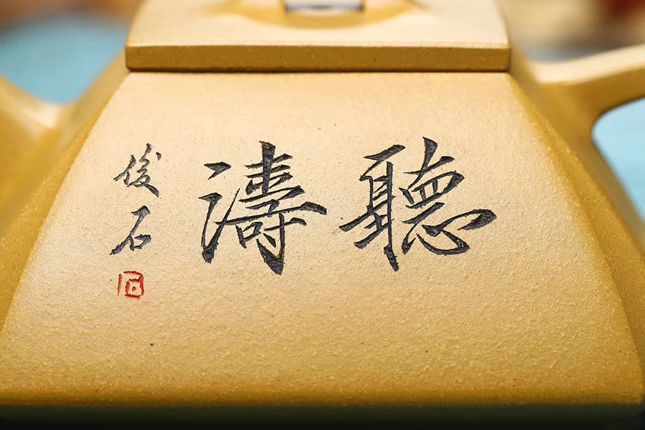 聽濤
俊石
石